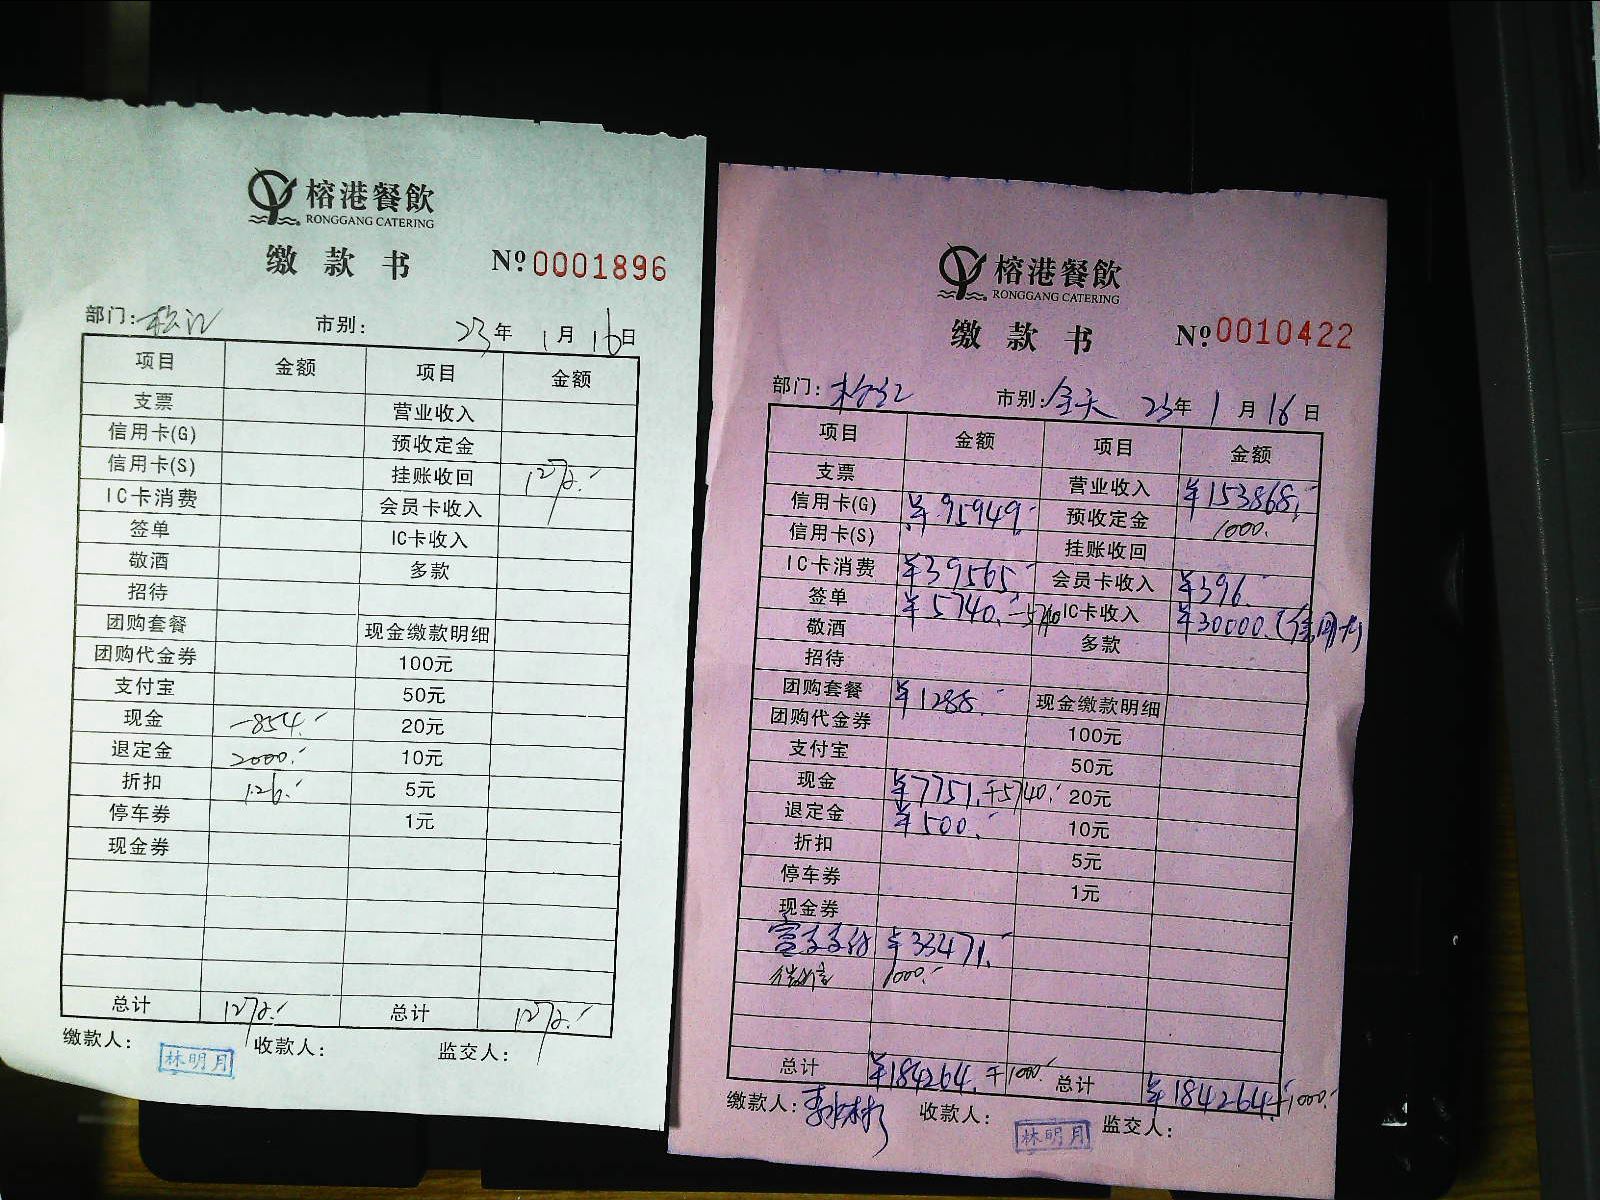 榕港餐飲
RONGGANG CATERING
缴款书 № 0001896
部门: 松江 市别: 23年 1月 16日
项目 金额 项目 金额
支票 营业收入
信用卡(G) 预收定金
信用卡(S) 挂账收回 1272.-
IC卡消费 会员卡收入
签单 IC卡收入
敬酒 多款
招待
团购套餐 现金缴款明细
团购代金券 100元
支付宝 50元
现金 -854.- 20元
退定金 2000.- 10元
折扣 126.- 5元
停车券 1元
现金券
总计 1272.- 总计 1272.-
缴款人: 收款人: 监交人:
林明月
榕港餐飲
RONGGANG CATERING
缴款书 № 0010422
部门: 松江 市别: 全天 23年 1月 16日
项目 金额 项目 金额
支票 营业收入 ¥153868.-
信用卡(G) ¥95949.- 预收定金 1000.
信用卡(S) 挂账收回
IC卡消费 ¥39565.- 会员卡收入 ¥396.-
签单 ¥5740.- -5740 IC卡收入 ¥30000.(信用卡)
敬酒 多款
招待
团购套餐 ¥1288.- 现金缴款明细
团购代金券 100元
支付宝 50元
现金 ¥7751.+5740.- 20元
退定金 ¥500.- 10元
折扣 5元
停车券 1元
现金券
¥33471.-
微信 1000.-
总计 ¥184264.+1000.- 总计 ¥184264.+1000.-
缴款人: 收款人: 监交人:
林明月